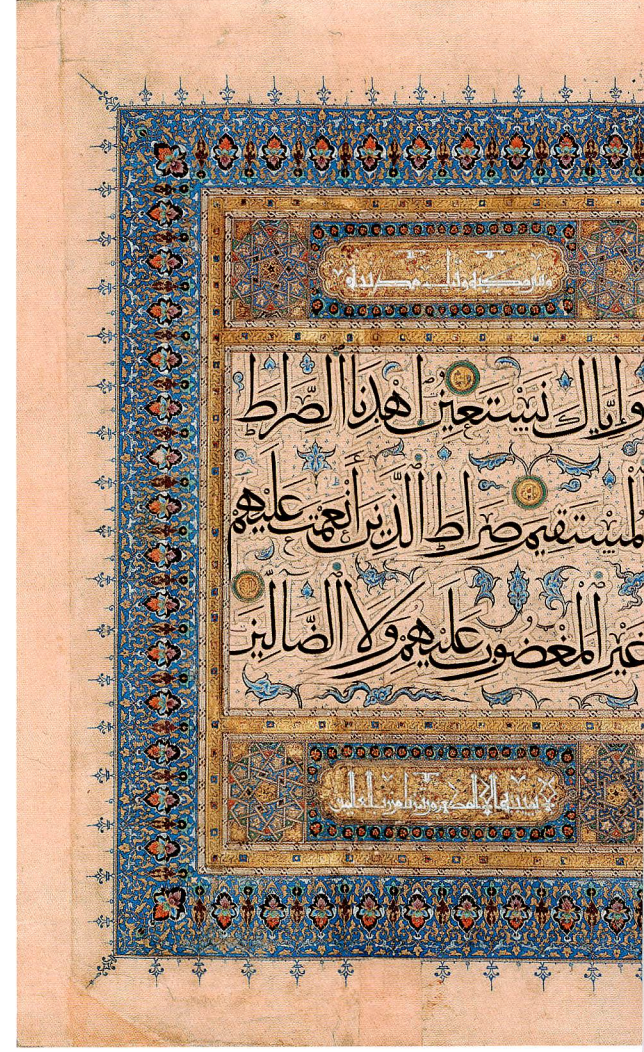 وَإِيَّاكَ نَسْتَعِينُ اهْدِنَا الصِّرَاطَ
الْمُسْتَقِيمَ صِرَاطَ الَّذِينَ أَنْعَمْتَ عَلَيْهِمْ
غَيْرِ الْمَغْضُوبِ عَلَيْهِمْ وَلَا الضَّالِّينَ
لا يمسه إلا المطهرون تنزيل من رب العالمين